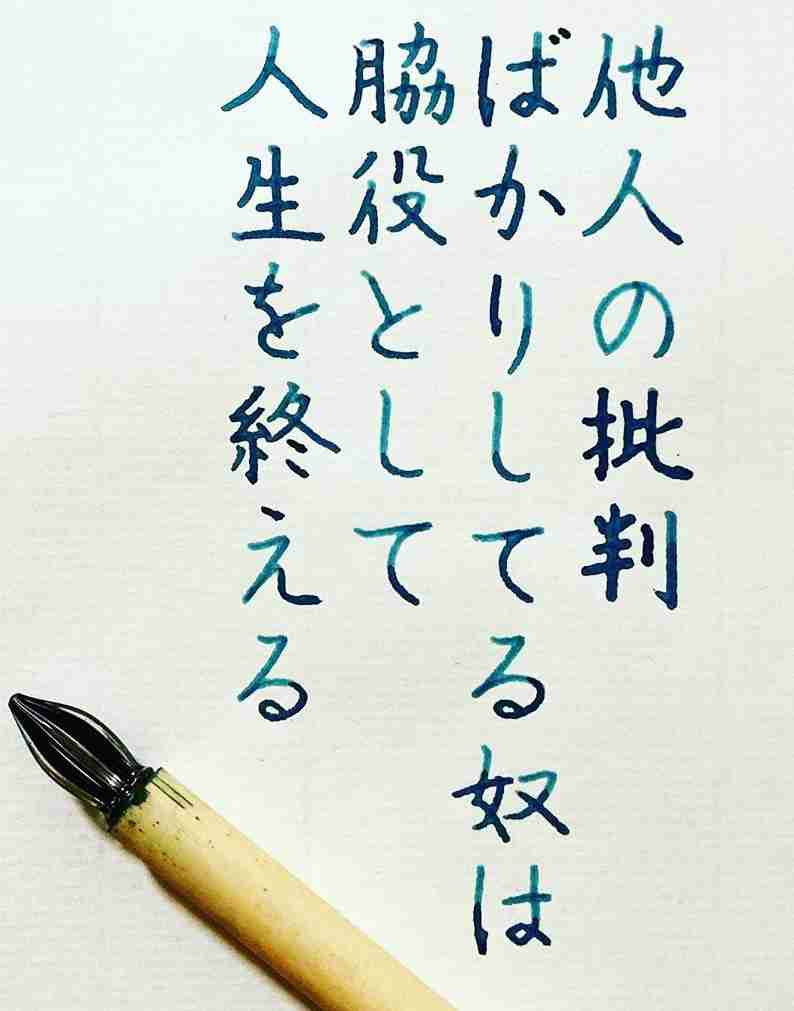 他人の批判
ばかりしてる奴は
脇役として
人生を終える